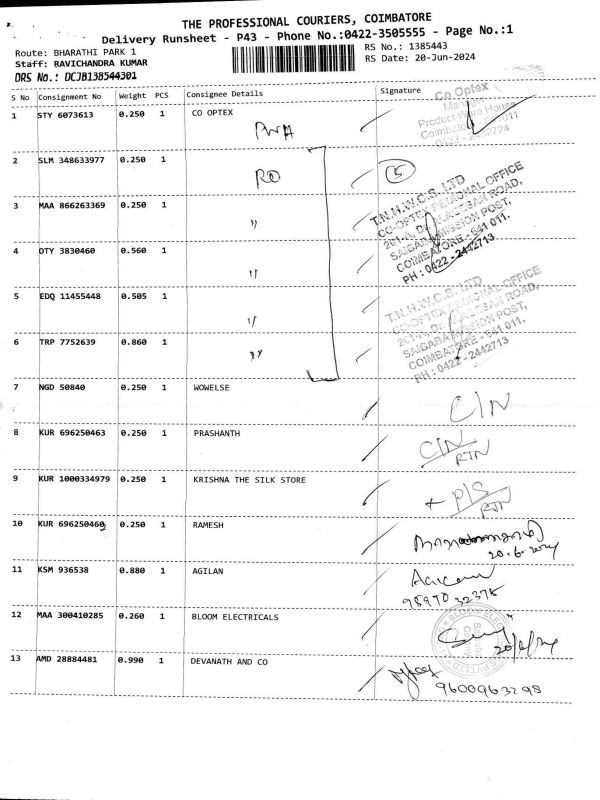 THE PROFESSIONAL COURIERS, COIMBATORE
Delivery Runsheet - P43 - Phone No.:0422-3505555 - Page No.:1
Route: BHARATHI PARK 1
RS No.: 1385443
Staff: RAVICHANDRA KUMAR
RS Date: 20-Jun-2024
DRS No.: DCJB138544301
S No Consignment No Weight PCS Consignee Details Signature
1 STY 6073613 0.250 1 CO OPTEX
Co Optex
PWH
Product Ware House
2 SLM 348633977 0.250 1
RO
5
T.N.H.W.C.S. LTD
CO-OPTEX REGIONAL OFFICE
SAIBABA MISSION POST,
COIMBATORE - 641 011.
PH : 0422 - 2442713
3 MAA 866263369 0.250 1
"
4 DTY 3830460 0.560 1
"
5 EDQ 11455448 0.505 1
"
T.N.H.W.C.S. LTD
CO-OPTEX REGIONAL OFFICE
SAIBABA MISSION POST,
COIMBATORE - 641 011.
PH : 0422 - 2442713
6 TRP 7752639 0.860 1
"
7 NGD 50840 0.250 1 WOWELSE
C/N
8 KUR 696250463 0.250 1 PRASHANTH
C/N
RTN
9 KUR 1000334979 0.250 1 KRISHNA THE SILK STORE
P/S
RTN
10 KUR 696250462 0.250 1 RAMESH
20.6.2024
11 KSM 936538 0.880 1 AGILAN
98970 32375
12 MAA 300410285 0.260 1 BLOOM ELECTRICALS
20/6/24
13 AMD 28884481 0.990 1 DEVANATH AND CO
9600963298